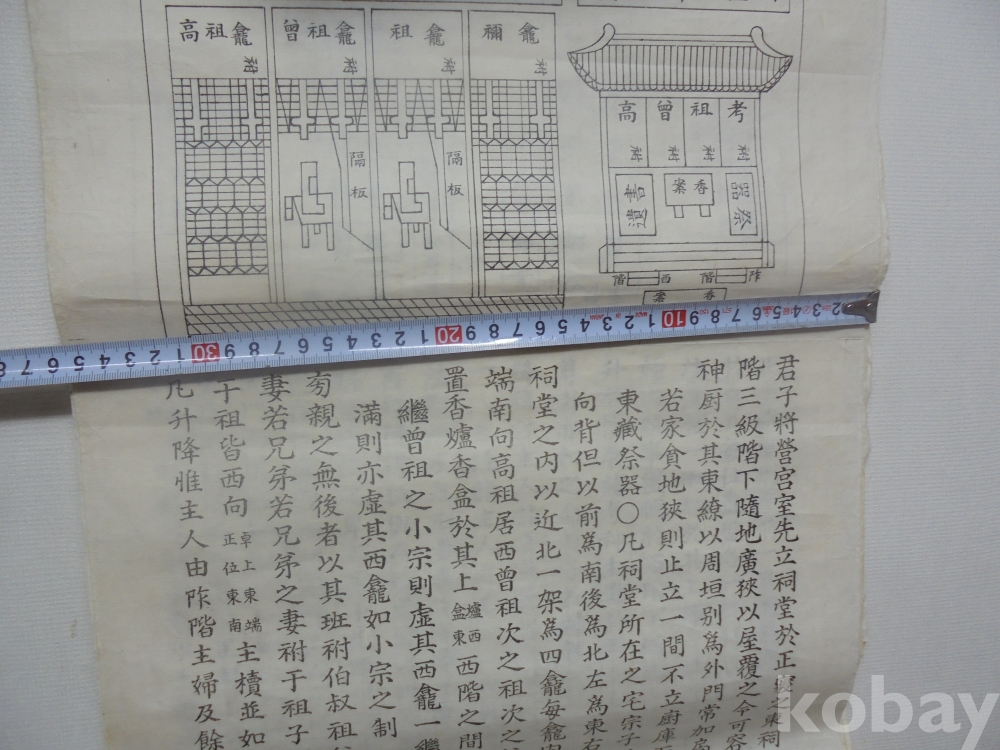 高祖龕 祔
曾祖龕 祔
祖龕 祔
禰龕 祔
隔板
隔板
考 祔
祖 祔
曾 祔
高 祔
祭器
香案
遺書
阼階
西階
香案
君子將營宮室先立祠堂於正寢之東祠
階三級階下隨地廣狹以屋覆之令可容
神厨於其東繚以周垣别爲外門常加
若家貧地狹則止立一間不立厨庫
東藏祭器〇凡祠堂所在之宅宗子
向背但以前爲南後爲北左爲東右
祠堂之内以近北一架爲四龕每龕内
端南向高祖居西曾祖次之祖次之
置香爐香盒於其上爐西盒東西階之間
繼曾祖之小宗則虛其西龕一繼
滿則亦虛其西龕如小宗之制
旁親之無後者以其班祔伯叔祖
妻若兄弟若兄弟之妻祔于祖子
于祖皆西向卓上東端正位東南主櫝並如
凡升降惟主人由阼階主婦及餘
2 3 4 5 6 7 8 9 10 1 2 3 4 5 6 7 8 9 20 1 2 3 4 5 6 7 8 9 30 1 2 3 4 5 6 7 8
kobay